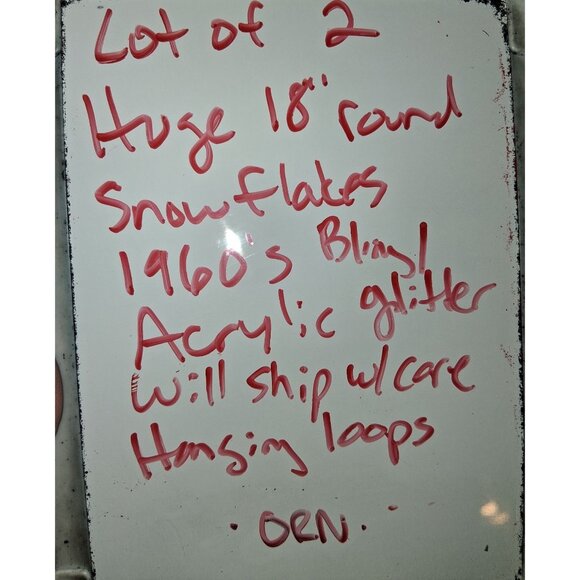 Lot of 2
Huge 18" round
Snowflakes
1960's Bling/
Acrylic glitter
Will ship w/care
Hanging loops
· ORN ·